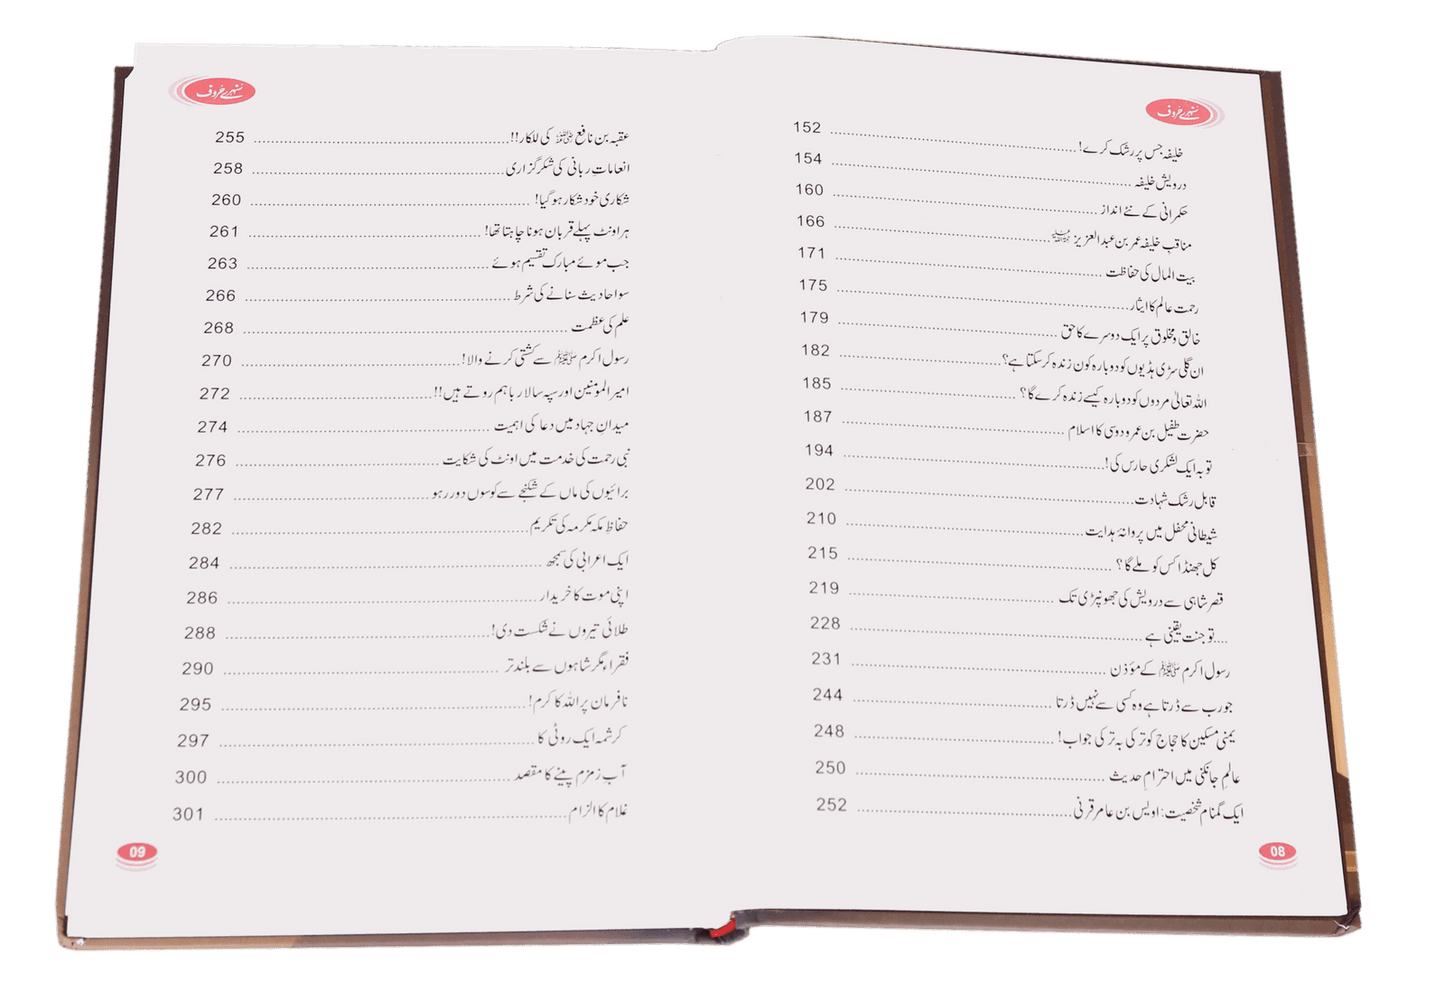 سنہرے حُروف
خلیفہ جس پر رشک کرے! 152
درویش خلیفہ 154
حکمرانی کے نئے انداز 160
مناقب خلیفہ عمر بن عبدالعزیز 166
بیت المال کی حفاظت 171
رحمت عالم کا ایثار 175
خالق و مخلوق پر ایک دوسرے کا حق 179
ان گلی سڑی ہڈیوں کو دوبارہ کون زندہ کر سکتا ہے؟ 182
اللہ تعالیٰ مردوں کو دوبارہ کیسے زندہ کرے گا؟ 185
حضرت طفیل بن عمرو دوسی کا اسلام 187
توبہ ایک لشکری حارس کی! 194
قابل رشک شہادت 202
شیطانی محفل میں پروانۂ ہدایت 210
کل جھنڈا کس کو ملے گا؟ 215
قصر شاہی سے درویش کی جھونپڑی تک 219
....تو جنت یقینی ہے 228
رسول اکرم ﷺ کے مؤذن 231
جو رب سے ڈرتا ہے وہ کسی سے نہیں ڈرتا 244
یمنی مسکین کا حجاج کو ترکی بہ ترکی جواب! 248
عالمِ جانکنی میں احترامِ حدیث 250
ایک گمنام شخصیت: اویس بن عامر قرنی 252
08
سنہرے حُروف
عقبہ بن نافع کی للکار!! 255
انعاماتِ ربانی کی شکرگزاری 258
شکاری خود شکار ہو گیا! 260
ہر اونٹ پہلے قربان ہونا چاہتا تھا! 261
جب موئے مبارک تقسیم ہوئے 263
سو احادیث سنانے کی شرط 266
علم کی عظمت 268
رسول اکرم ﷺ سے کشتی کرنے والا! 270
امیر المومنین اور سپہ سالار باہم روتے ہیں!! 272
میدانِ جہاد میں دعا کی اہمیت 274
نبی رحمت کی خدمت میں اونٹ کی شکایت 276
برائیوں کی ماں کے شکنجے سے کوسوں دور رہو 277
حفاظِ مکہ مکرمہ کی تکریم 282
ایک اعرابی کی سمجھ 284
اپنی موت کا خریدار 286
طلائی تیروں نے شکست دی! 288
فقراء مگر شاہوں سے بلند تر 290
نافرمان پر اللہ کا کرم! 295
کرشمہ ایک روٹی کا 297
آب زمزم پینے کا مقصد 300
غلام کا الزام 301
09